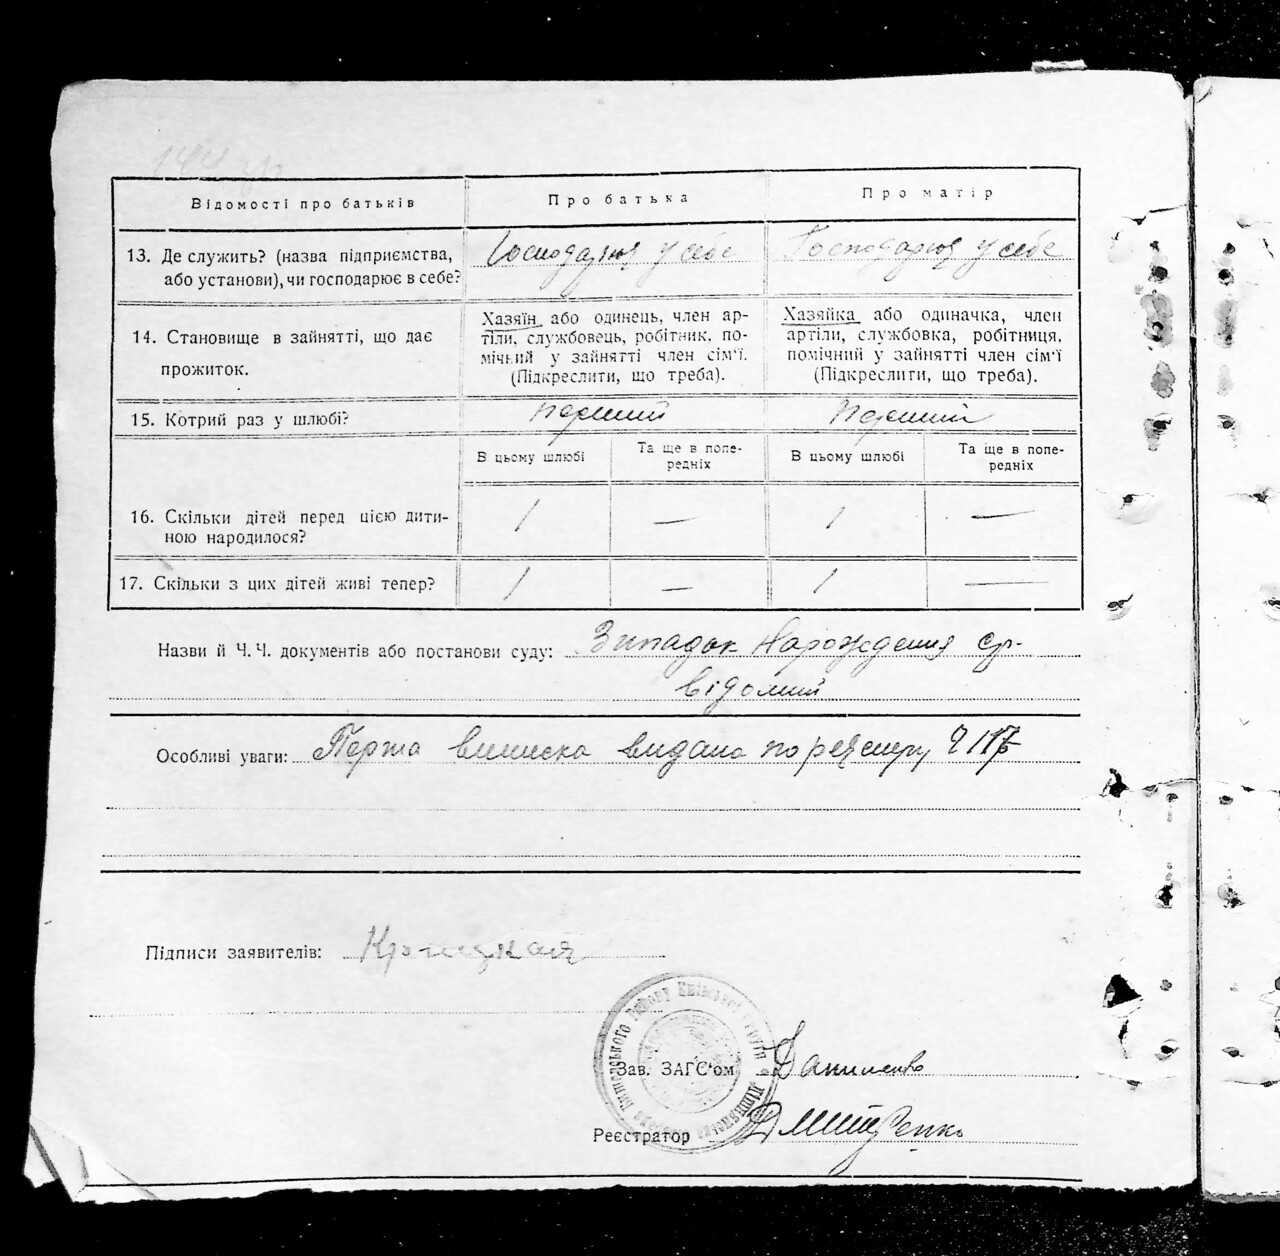 144 зв
Відомості про батьків
Про батька
Про матір
13. Де служить? (назва підприємства,
або установи), чи господарює в себе?
Господарює у себе
Господарює у себе
14. Становище в зайнятті, що дає
прожиток.
Хазяїн або одинець, член ар-
тіли, службовець, робітник, по-
мічний у зайнятті член сім'ї.
(Підкреслити, що треба).
Хазяйка або одиначка, член
артіли, службовка, робітниця,
помічний у зайнятті член сім'ї
(Підкреслити, що треба).
15. Котрий раз у шлюбі?
перший
перший
В цьому шлюбі
Та ще в попе-
редніх
В цьому шлюбі
Та ще в попе-
редніх
16. Скільки дітей перед цією дити-
ною народилося?
1 — 1 —
17. Скільки з цих дітей живі тепер?
1 — 1 —
Назви й Ч. Ч. документів або постанови суду: Випадок Народження
відомий
Особливі уваги: Перша виписка видана по реєстру
Підписи заявителів:
Зав. ЗАГС'ом Даниленко
Реєстратор Дмитренко